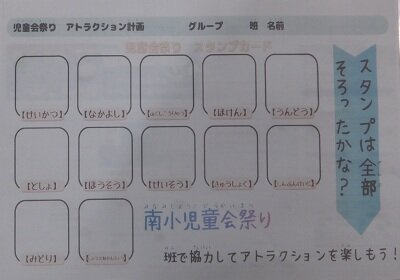 児童会祭り　アトラクション計画　　グループ　　班　名前
児童会祭り　スタンプカード
【せいかつ】　【なかよし】　【ほけん】　【うんどう】
【としょ】　【ほうそう】　【せいそう】　【きゅうしょく】
【みどり】
スタンプは全部
そろったかな？
南小児童会祭り
班で協力してアトラクションを楽しもう！